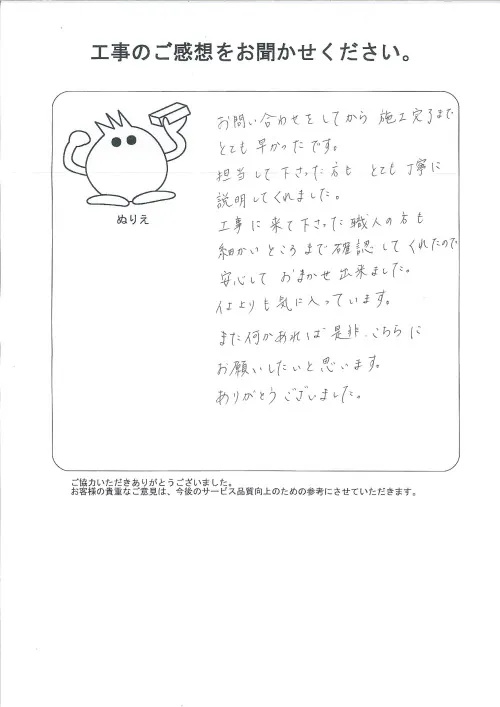 工事のご感想をお聞かせください。
ぬりえ
お問い合わせをしてから 施工完了まで
とても 早かったです。
担当して下さった方も とても丁寧に
説明してくれました。
工事に来て下さった職人の方も
細かいところまで確認してくれたので
安心して おまかせ出来ました。
仕上りも気に入っています。
また何かあれば是非、こちらに
お願いしたいと思います。
ありがとうございました。
ご協力いただきありがとうございました。
お客様の貴重なご意見は、今後のサービス品質向上のための参考にさせていただきます。